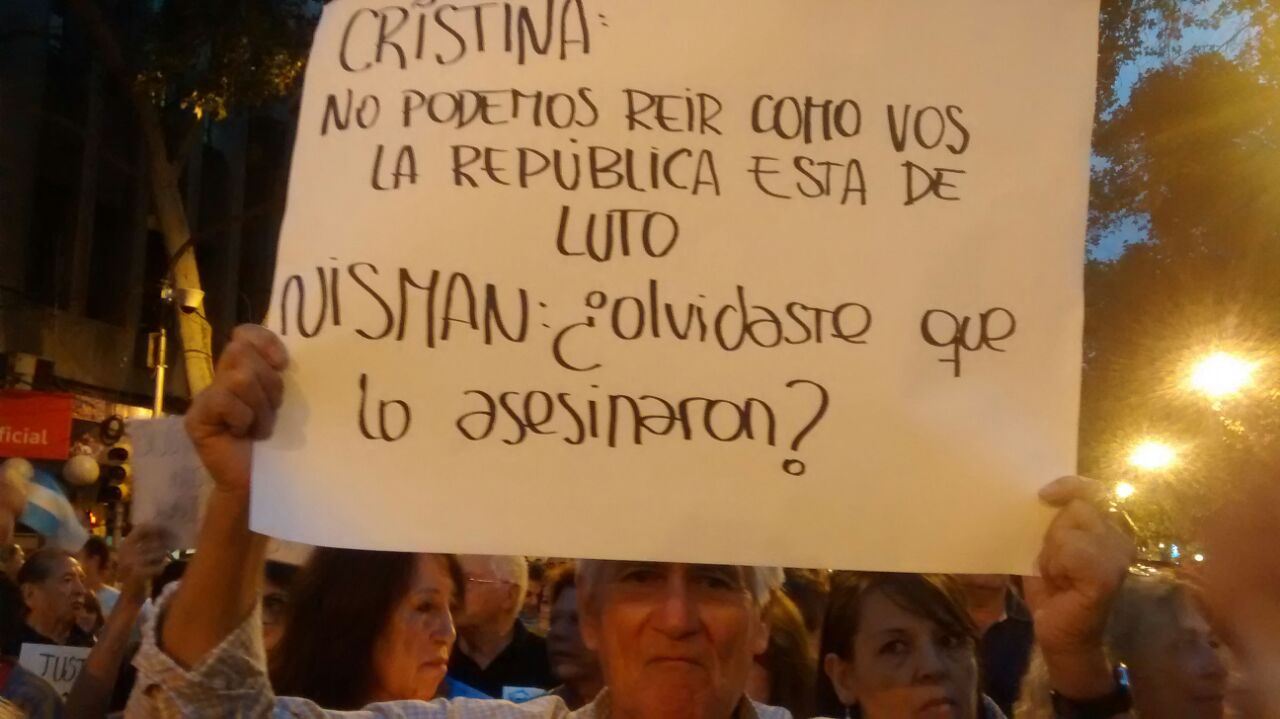 CRISTINA:
NO PODEMOS REIR COMO VOS
LA REPÚBLICA ESTA DE
LUTO
NISMAN: ¿olvidaste que
lo asesinaron?
ficial
JUST